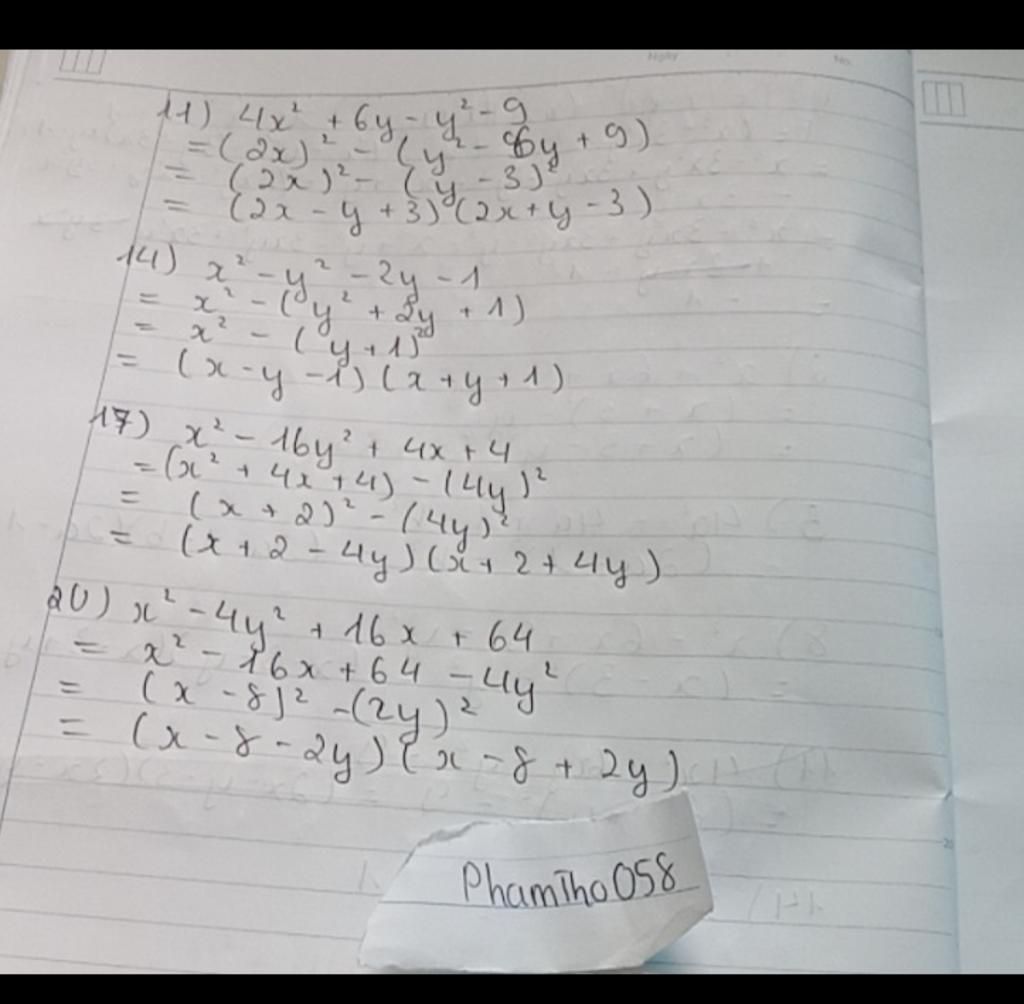 Ngày
No.
11) 4x² + 6y - y² - 9
= (2x)² - (y² - 6y + 9)
= (2x)² - (y - 3)²
= (2x - y + 3)(2x + y - 3)
14) x² - y² - 2y - 1
= x² - (y² + 2y + 1)
= x² - (y + 1)²
= (x - y - 1)(x + y + 1)
17) x² - 16y² + 4x + 4
= (x² + 4x + 4) - (4y)²
= (x + 2)² - (4y)²
= (x + 2 - 4y)(x + 2 + 4y)
20) x² - 4y² + 16x + 64
= x² - 16x + 64 - 4y²
= (x - 8)² - (2y)²
= (x - 8 - 2y)(x - 8 + 2y)
PhamTho058